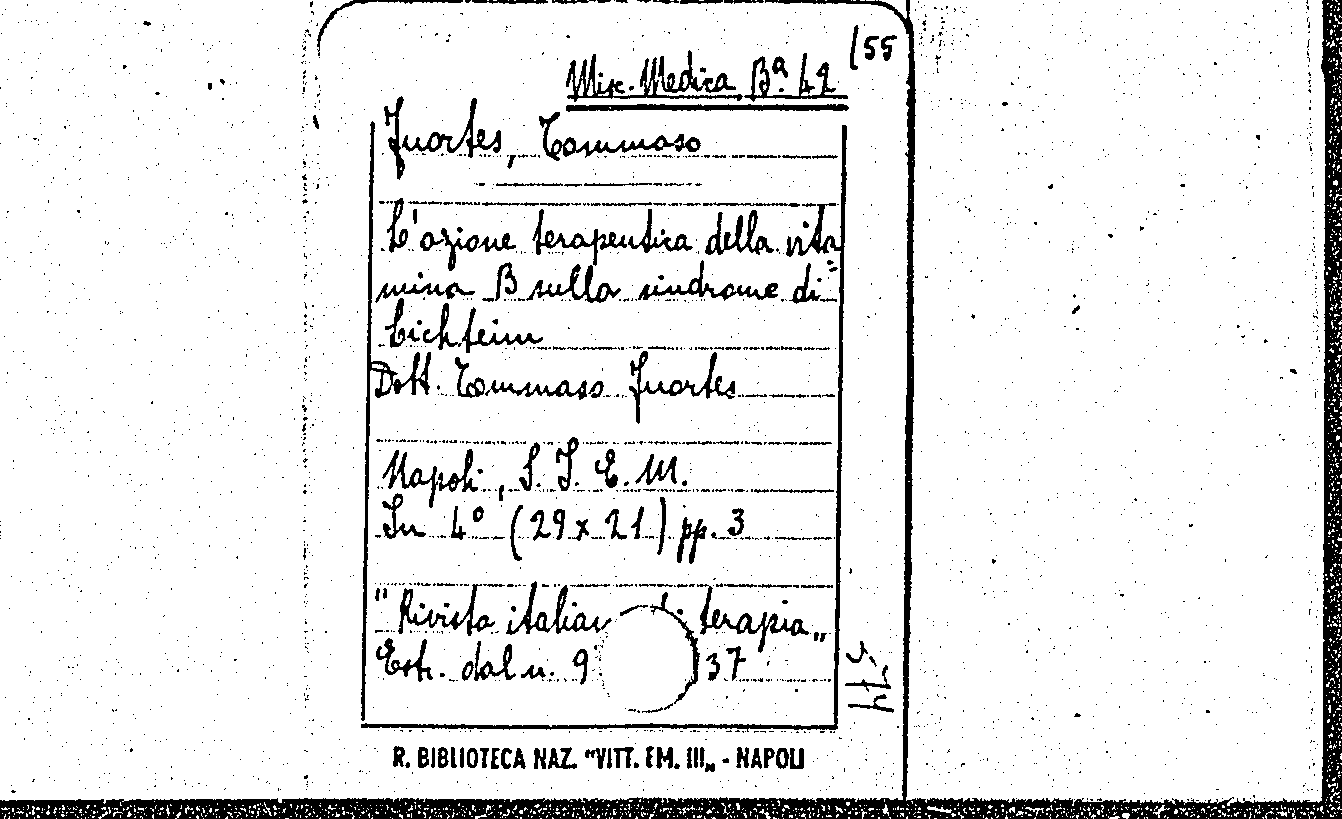 Misc. Medica Bª. 42 (55
Fuortes, Tommaso
L'azione terapeutica della vita
mina B sulla sindrome di
Lichteim
Dott. Tommaso Fuortes
Napoli, S. I. E. M.
In 4º (29 x 21) pp. 3
"Rivista italian di terapia„
Estr. dal n. 9 37
R. BIBLIOTECA NAZ. "VITT. EM. III„ - NAPOLI